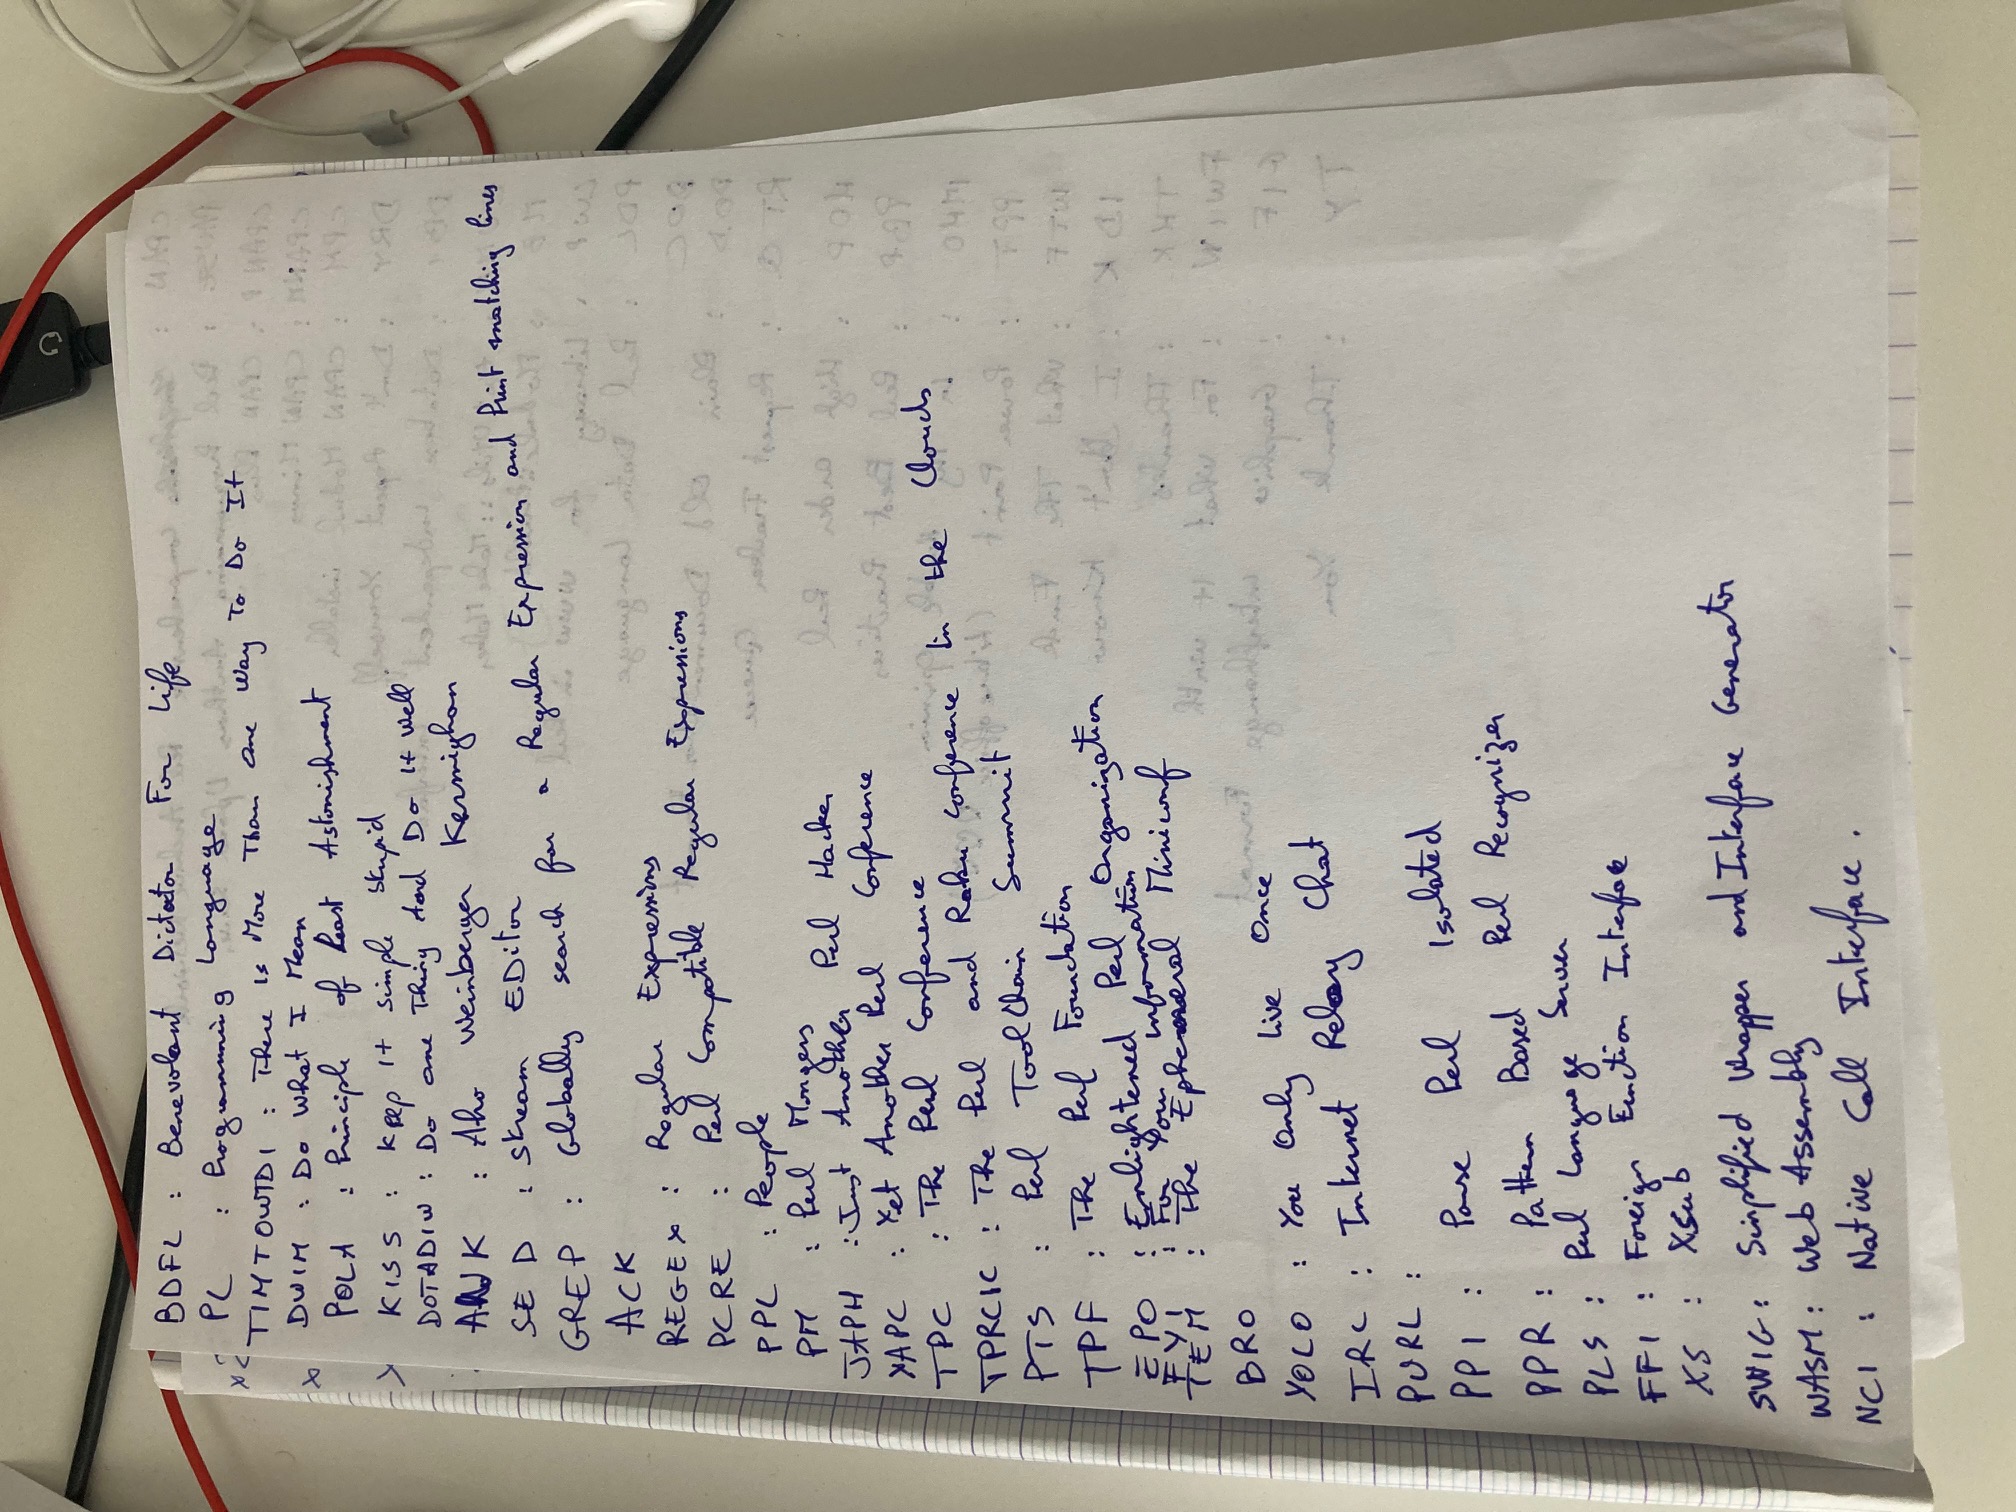 BDFL : Benevolent Dictator For Life
PL : Programming Language
TIMTOWTDI : There is More Than One Way To Do It
DWIM : Do What I Mean
POLA : Principle of Least Astonishment
KISS : Keep It Simple Stupid
DOTADIW : Do One Thing And Do It Well
AWK : Aho Weinberger Kernighan
SED : Stream EDitor
GREP : Globally search for a Regular Expression and Print matching lines
ACK
REGEX : Regular Expressions
PCRE : Perl Compatible Regular Expressions
PPL : People
PM : Perl Mongers
JAPH : Just Another Perl Hacker
YAPC : Yet Another Perl Conference
TPC : The Perl Conference
TPRCIC : The Perl and Raku Conference In the Clouds
PTS : Perl ToolChain Summit
TPF : The Perl Foundation
EPO : Enlightened Perl Organization
FYI : For Your Information
TEM : The Ephemeral Miniconf
BRO
YOLO : You Only Live Once
IRC : Internet Relay Chat
PURL :
PPI : Parse Perl Isolated
PPR : Pattern Based Perl Recognizer
PLS : Perl Language Server
FFI : Foreign Function Interface
XS : XSub
SWIG : Simplified Wrapper and Interface Generator
WASM : Web Assembly
NCI : Native Call Interface.